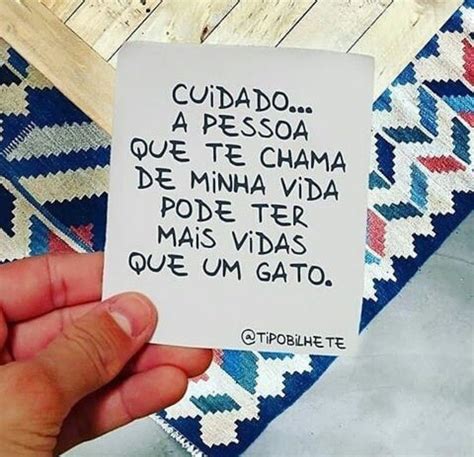 CUIDADO...
A PESSOA
QUE TE CHAMA
DE MINHA VIDA
PODE TER
MAIS VIDAS
QUE UM GATO.
@TIPOBILHETE